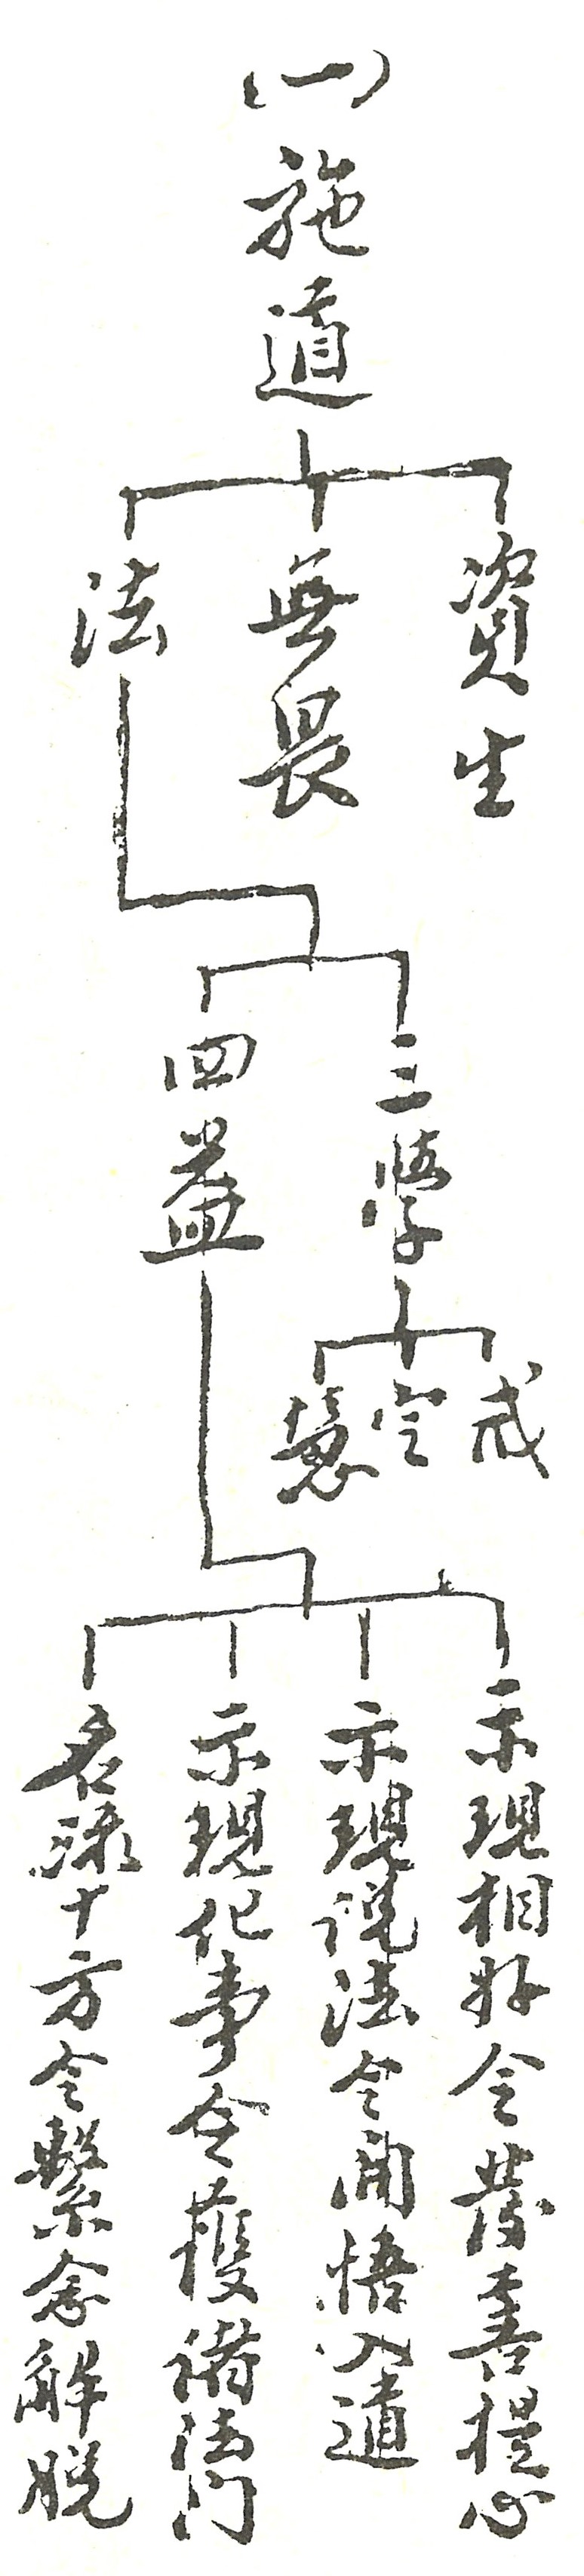 (一)施道
資生
無畏
法
三學
四益
戒
定
慧
示現相好令發菩提心
示現說法令開悟入道
示現化事令獲諸法門
名流十方令繫念解脫